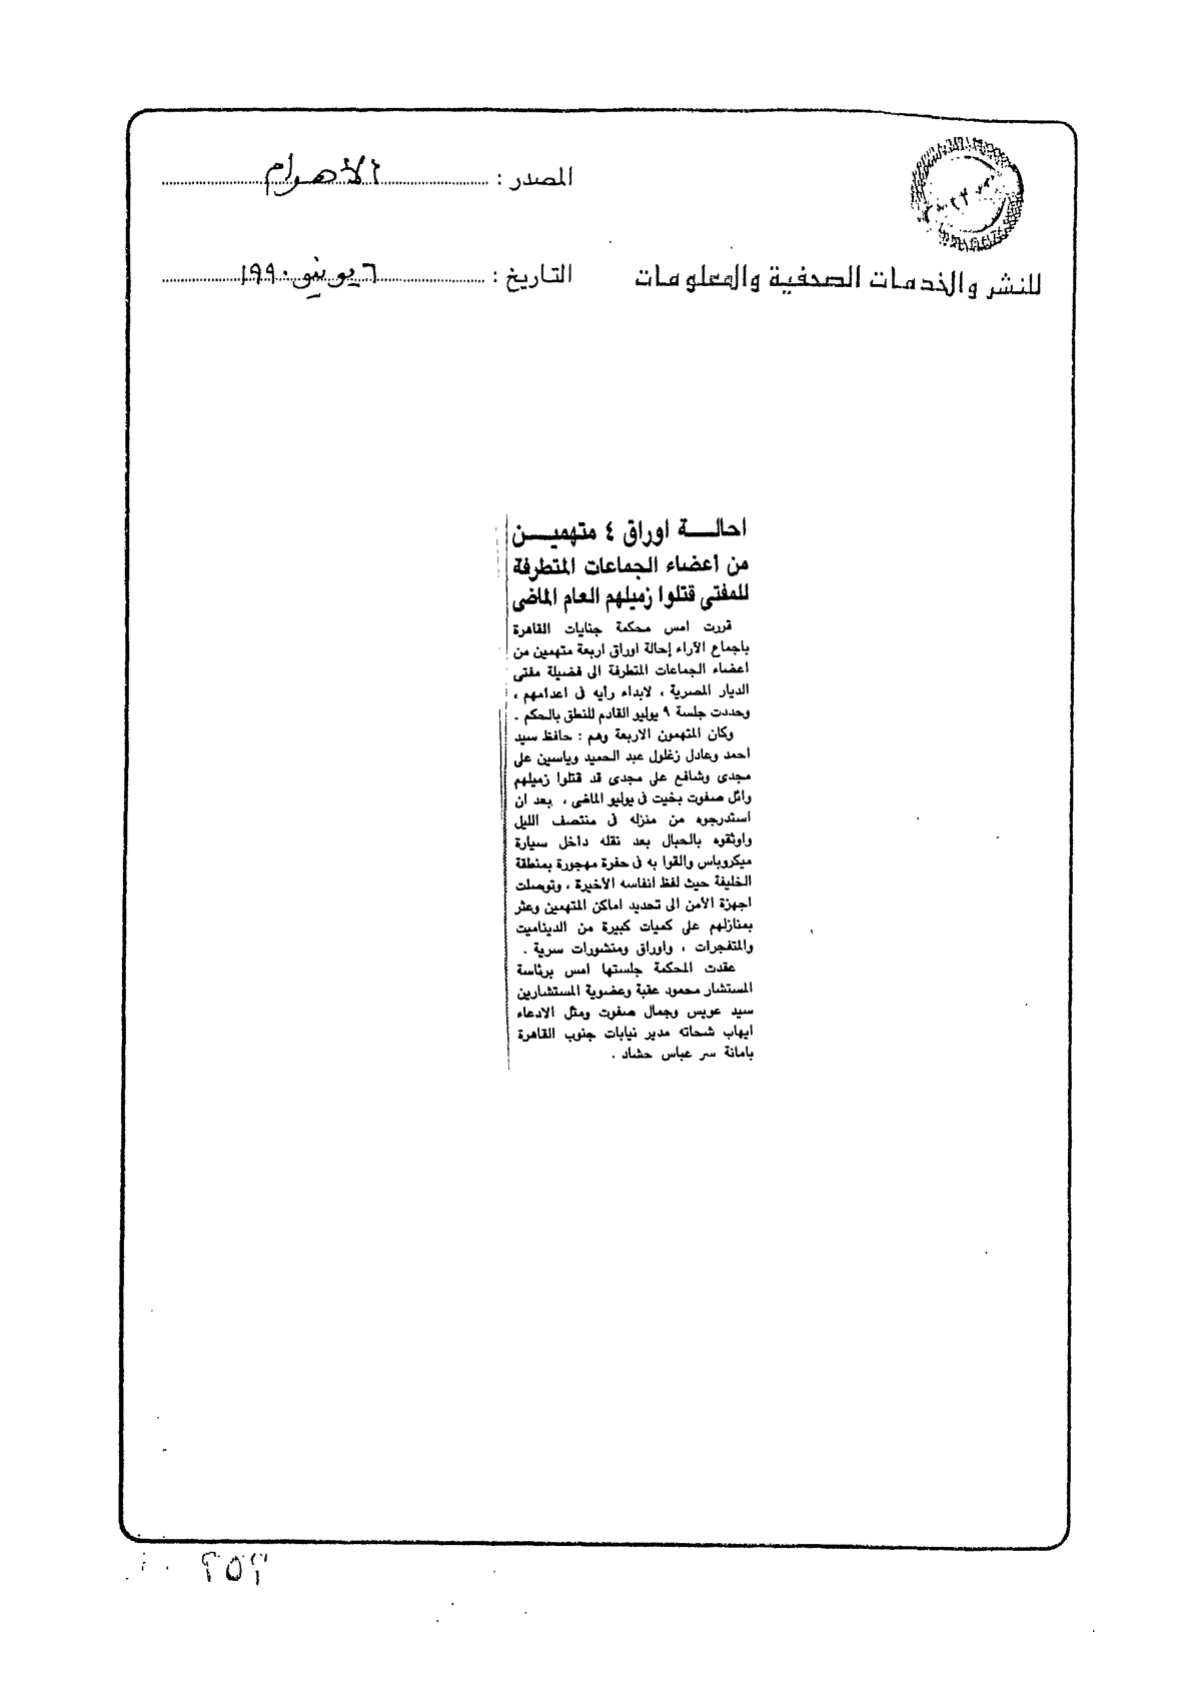 المصدر : الأهرام
للنشر والخدمات الصحفية والمعلومات
التاريخ : ٦ يونيو ١٩٩٠
احالة اوراق ٤ متهمين
من أعضاء الجماعات المتطرفة
للمفتى قتلوا زميلهم العام الماضى
قررت امس محكمة جنايات القاهرة
باجماع الآراء إحالة اوراق اربعة متهمين من
اعضاء الجماعات المتطرفة الى فضيلة مفتى
الديار المصرية ، لابداء رأيه فى اعدامهم ،
وحددت جلسة ٩ يوليو القادم للنطق بالحكم .
وكان المتهمون الاربعة وهم : حافظ سيد
احمد وعادل زغلول عبد الحميد وياسين على
مجدى وشافع على مجدى قد قتلوا زميلهم
وائل صفوت بخيت فى يوليو الماضى ، بعد ان
استدرجوه من منزله فى منتصف الليل
واوثقوه بالحبال بعد نقله داخل سيارة
ميكروباس والقوا به فى حفرة مهجورة بمنطقة
الخليفة حيث لفظ انفاسه الأخيرة ، وتوصلت
اجهزة الأمن الى تحديد اماكن المتهمين وعثر
بمنازلهم على كميات كبيرة من الديناميت
والمتفجرات ، واوراق ومنشورات سرية .
عقدت المحكمة جلستها امس برئاسة
المستشار محمود عقبة وعضوية المستشارين
سيد عويس وجمال صفوت ومثل الادعاء
ايهاب شحاته مدير نيابات جنوب القاهرة
بامانة سر عباس حشاد .